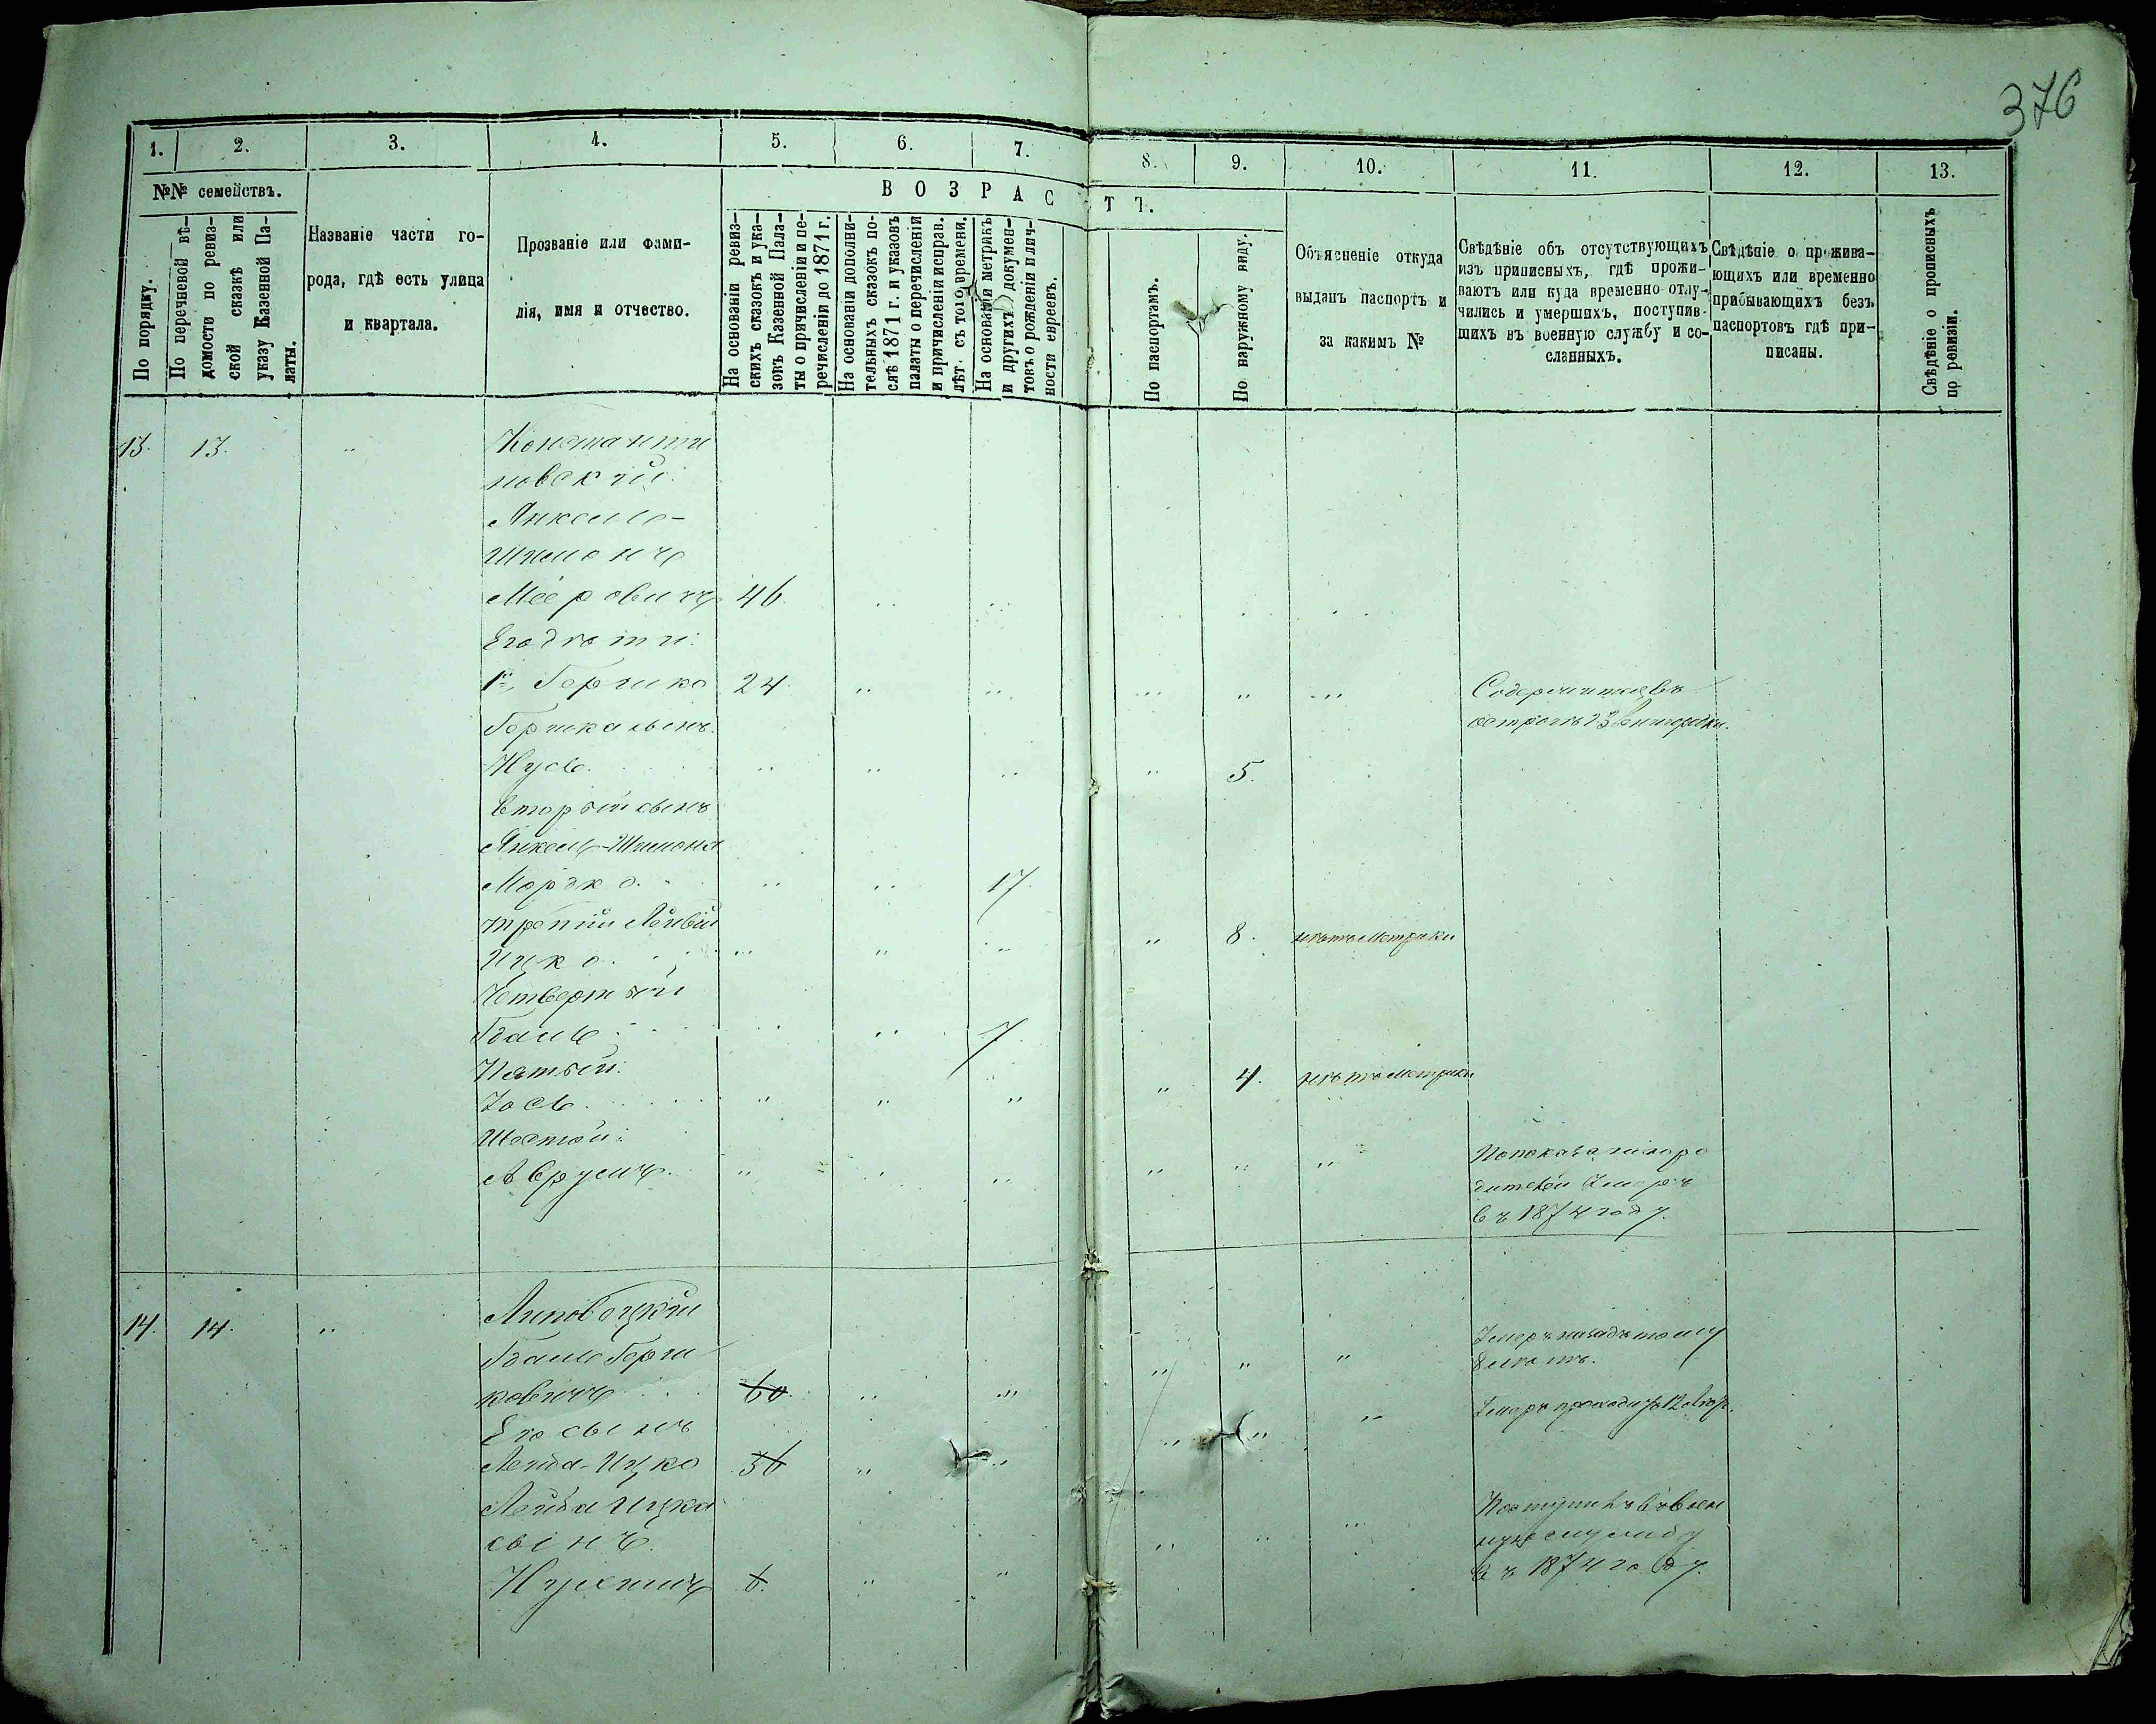 376
1. 2. 3. 4. 5. 6. 7. 8. 9. 10. 11. 12. 13.
№№ семействъ.
По порядку.
По перечневой вѣ-
домости по ревиз-
ской сказкѣ или
указу Казенной Па-
латы.
Названіе части го-
рода, гдѣ есть улица
и квартала.
Прозваніе или фами-
лія, имя и отчество.
ВОЗРАСТЪ.
На основаніи ревиз-
скихъ сказокъ и ука-
зовъ Казенной Пала-
ты о причисленіи и пе-
речисленіи до 1871 г.
На основаніи дополни-
тельныхъ сказокъ по-
слѣ 1871 г. и указовъ
палаты о перечисленіи
и причисленіи исправ.
лѣт. съ того времени.
На основаніи метрикъ
и другихъ докумен-
товъ о рожденіи и лич-
ности евреевъ.
По паспортамъ.
По наружному виду.
Объясненіе откуда
выданъ паспортъ и
за какимъ №
Свѣдѣніе объ отсутствующихъ
изъ приписныхъ, гдѣ прожи-
ваютъ или куда временно отлу-
чились и умершихъ, поступив-
шихъ въ военную службу и со-
сланныхъ.
Свѣдѣніе о прожива-
ющихъ или временно
прибывающихъ безъ
паспортовъ гдѣ при-
писаны.
Свѣдѣніе о прописныхъ
по ревизіи.
13. 13. " Константи
новскій
Янкель-
Шимонъ
Мееровичъ 46
Его дѣти:
1й, Гершко 24 Содержится въ
Гершка сынъ острогѣ Звенигородки.
Нусь 5.
Вторый сынъ
Янкель-Шимона
Мордко 17
третій Лейбы
Ицко 8. нѣтъ Метрики
Четвертый
Гдаль 7
Пятый:
Іось 4. нѣтъ метрики
Шестой:
Аврумъ По показанію ро
дителей Умеръ
въ 1874 году.
14. 14. " Липовецкій
Гдаль Герш Умеръ назадъ тому
ковичъ 60 8 лѣтъ.
Его сынъ
Лейба-Ицко 36 Умеръ
Лейба Ицка
сынъ Поступилъ въ воен
ную службу
Нухимъ 6. въ 1874 году.